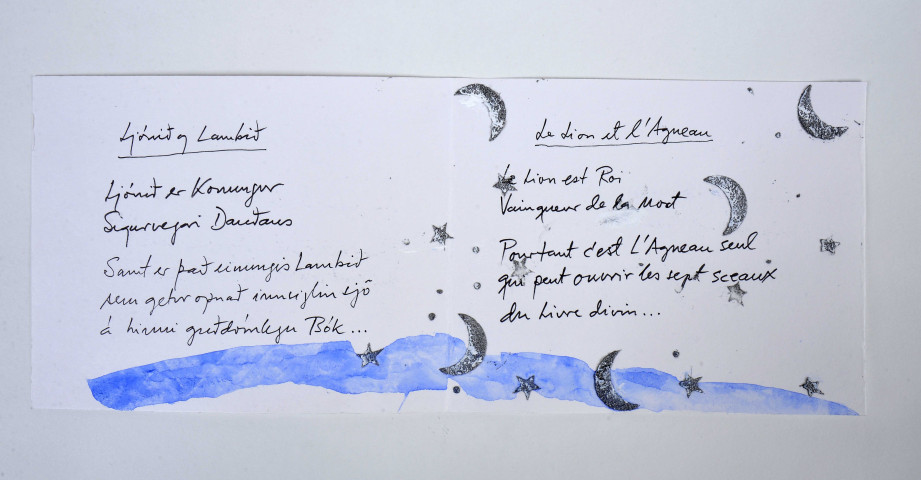 Ljónið og Lambið
Ljónið er Konungur
Sigurvegari Dauðans
Samt er það einungis Lambið
sem getur opnað innsiglin sjö
á hinni guðdómlegu Bók...
Le Lion et l'Agneau
Le Lion est Roi
Vainqueur de la Mort
Pourtant c'est L'Agneau seul
qui peut ouvrir les sept sceaux
du Livre divin...